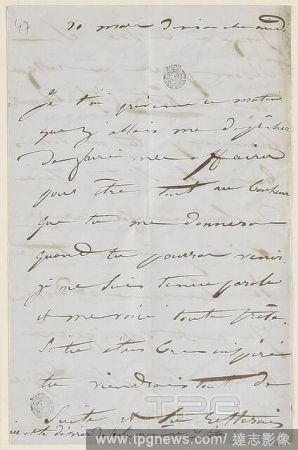 47
20 mars
Je t'ai prévenu ce matin
que j'allais me dépêcher
de faire mes affaires
pour être tout au bonheur
que tu me donneras
quand tu pourras venir.
je me suis tenu parole
et me voici toute prête.
Si tu étais bien inspiré
tu viendrais tout de
suite et tu
TPG
www.tpgnews.com/達志影像